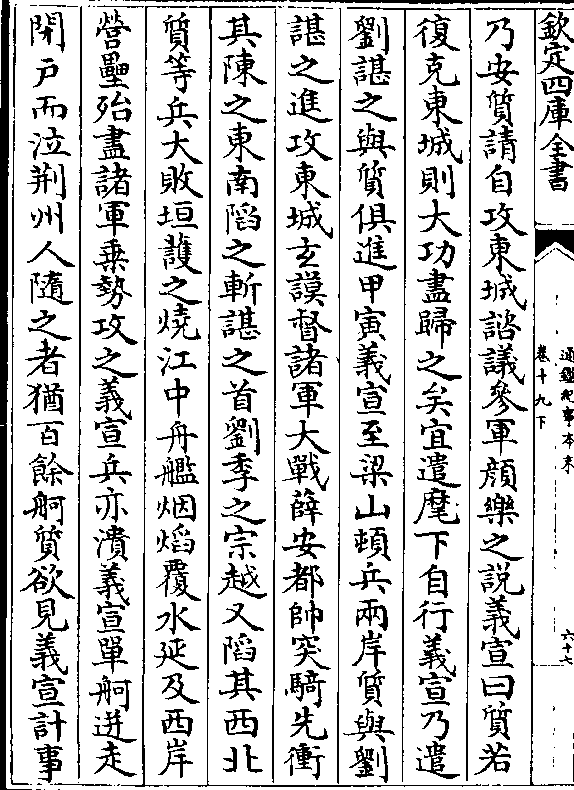 欽定四庫全書
通鑑紀事本末
卷十九下
六十七
乃安質請自攻東城諮議參軍顔樂之説義宣曰質若
復克東城則大功盡歸之矣宜遣麾下自行義宣乃遣
劉諶之與質俱進甲寅義宣至梁山頓兵兩岸質與劉
諶之進攻東城玄謨督諸軍大戰薛安都帥突騎先衝
其陳之東南䧟之斬諶之首劉季之宗越又䧟其西北
質等兵大敗垣護之燒江中舟艦烟熖覆水延及西岸
營壘殆盡諸軍乘勢攻之義宣兵亦潰義宣單舸迸走
閉戸而泣荆州人隨之者猶百餘舸質欲見義宣計事